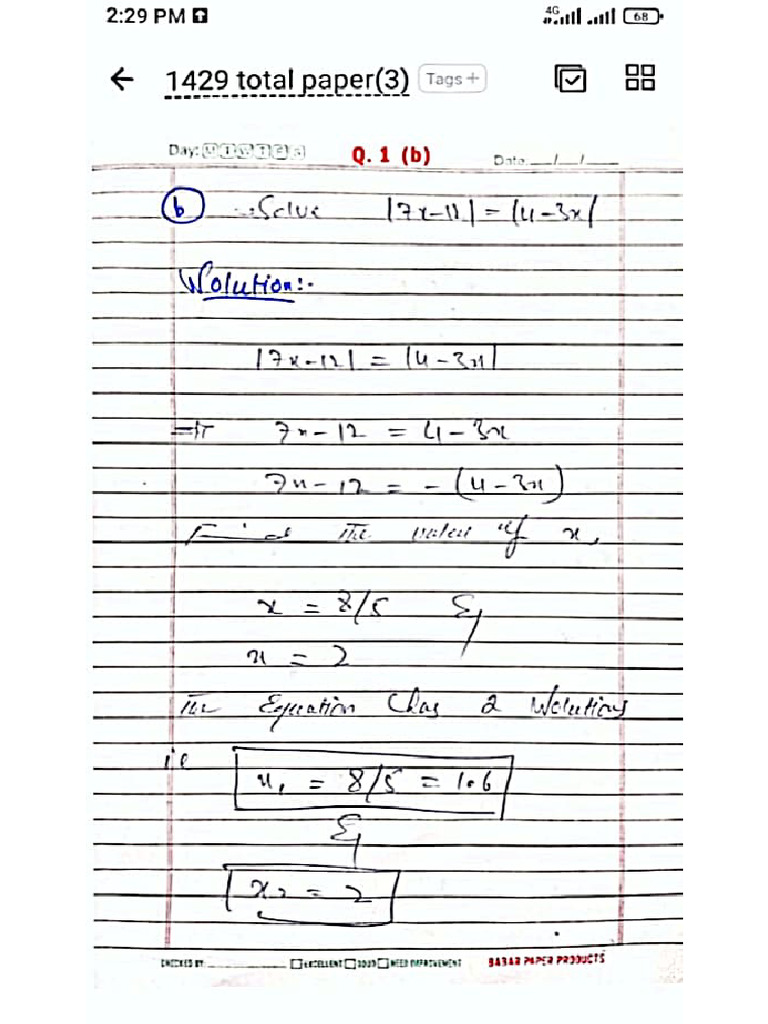 2:29 PM
4G
68
1429 total paper(3) Tags +
Day: M T W T F S
Q. 1 (b)
Date: __/__/__
(b) :- Solve |7x-12| = |4-3x|
Wolution:-
|7x-12| = |4-3x|
⇒ 7x-12 = 4-3x
7x-12 = -(4-3x)
Find the values of x,
x = 8/5 &
x = 2
The Equation Chas 2 Wolutions
i.e
x₁ = 8/5 = 1.6
&
x₂ = 2
CHECKED BY: EXCELLENT GOOD NEED IMPROVEMENT BABAR PAPER PRODUCTS